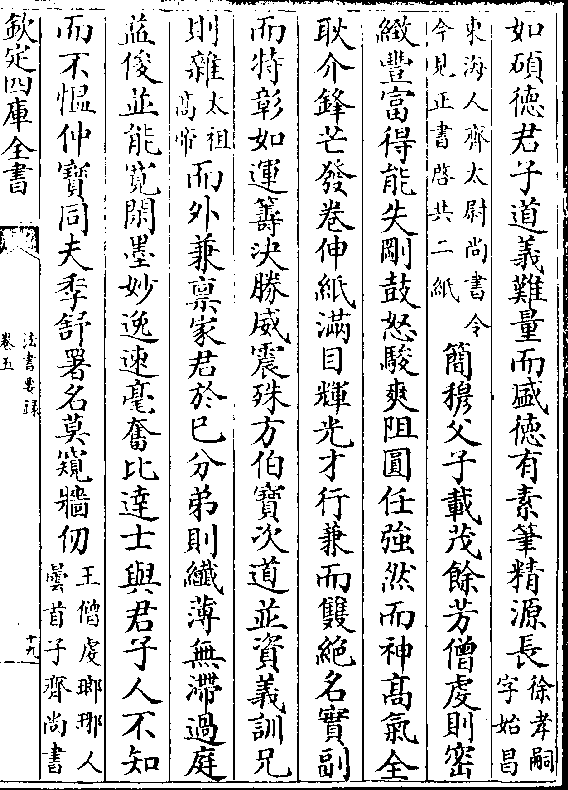 如碩德君子道義難量而盛德有素筆精源長徐孝嗣字始昌
東海人齊太尉尚書令今見正書啓共二紙簡穆父子載茂餘芳僧虔則密
緻豐富得能失剛鼓怒駿爽阻圓任強然而神高氣全
耿介鋒芒發卷伸紙滿目輝光才行兼而雙絕名實副
而特彰如運籌決勝威震殊方伯寶次道並資義訓兄
則雜太祖高帝而外兼稟家君於巳分弟則纖薄無滯過庭
藍俊並能寛閑墨妙逸速毫奮比達士與君子人不知
而不愠仲寶同夫季舒署名莫窺牆仞王僧虔瑯琊人曇首子齊尚書
欽定四庫全書
法書要錄
卷五
十九